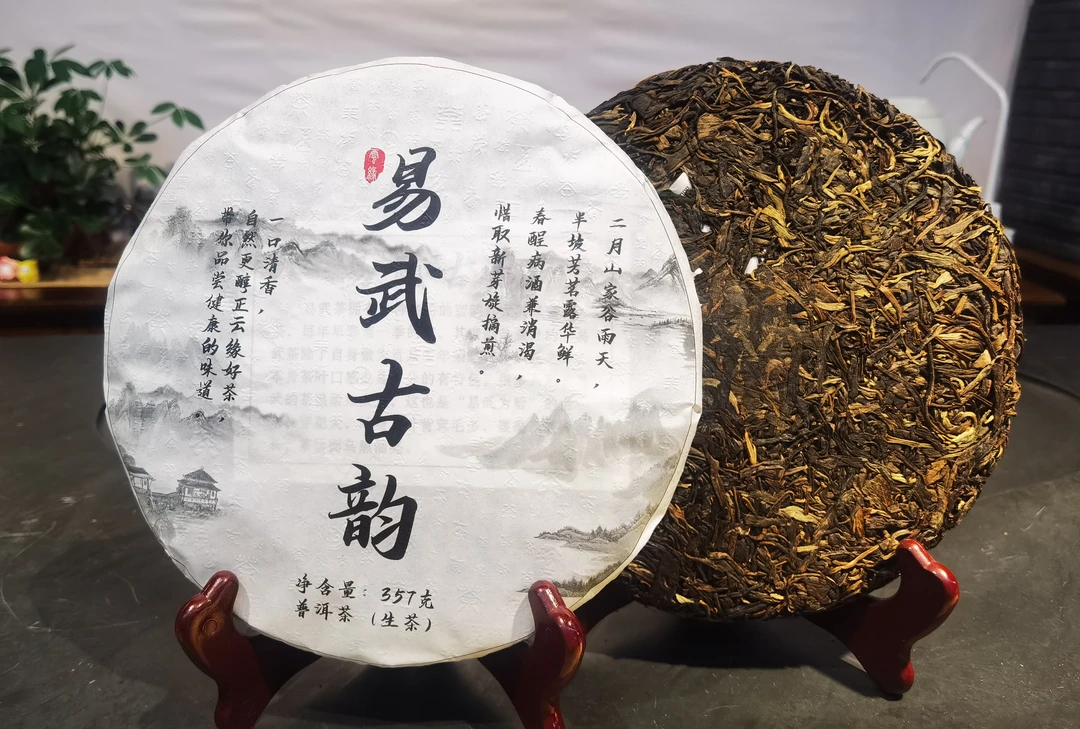 易武古韵
二月山家谷雨天，
半坡芳茗露华鲜。
春醒病酒兼消渴，
惜取新芽旋摘煎。
一口清香，
自然更醇正云缘好茶，
带你品尝健康的味道。
净含量：357克
普洱茶（生茶）